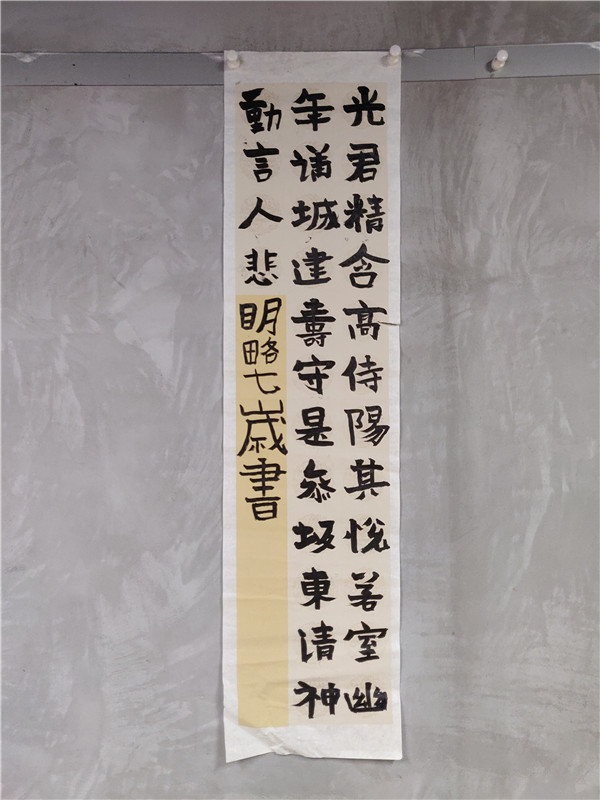 光君精含高侍陽其悅若室幽
年謠城建壽守是叅坂東清神
動言人悲
明略七歲書